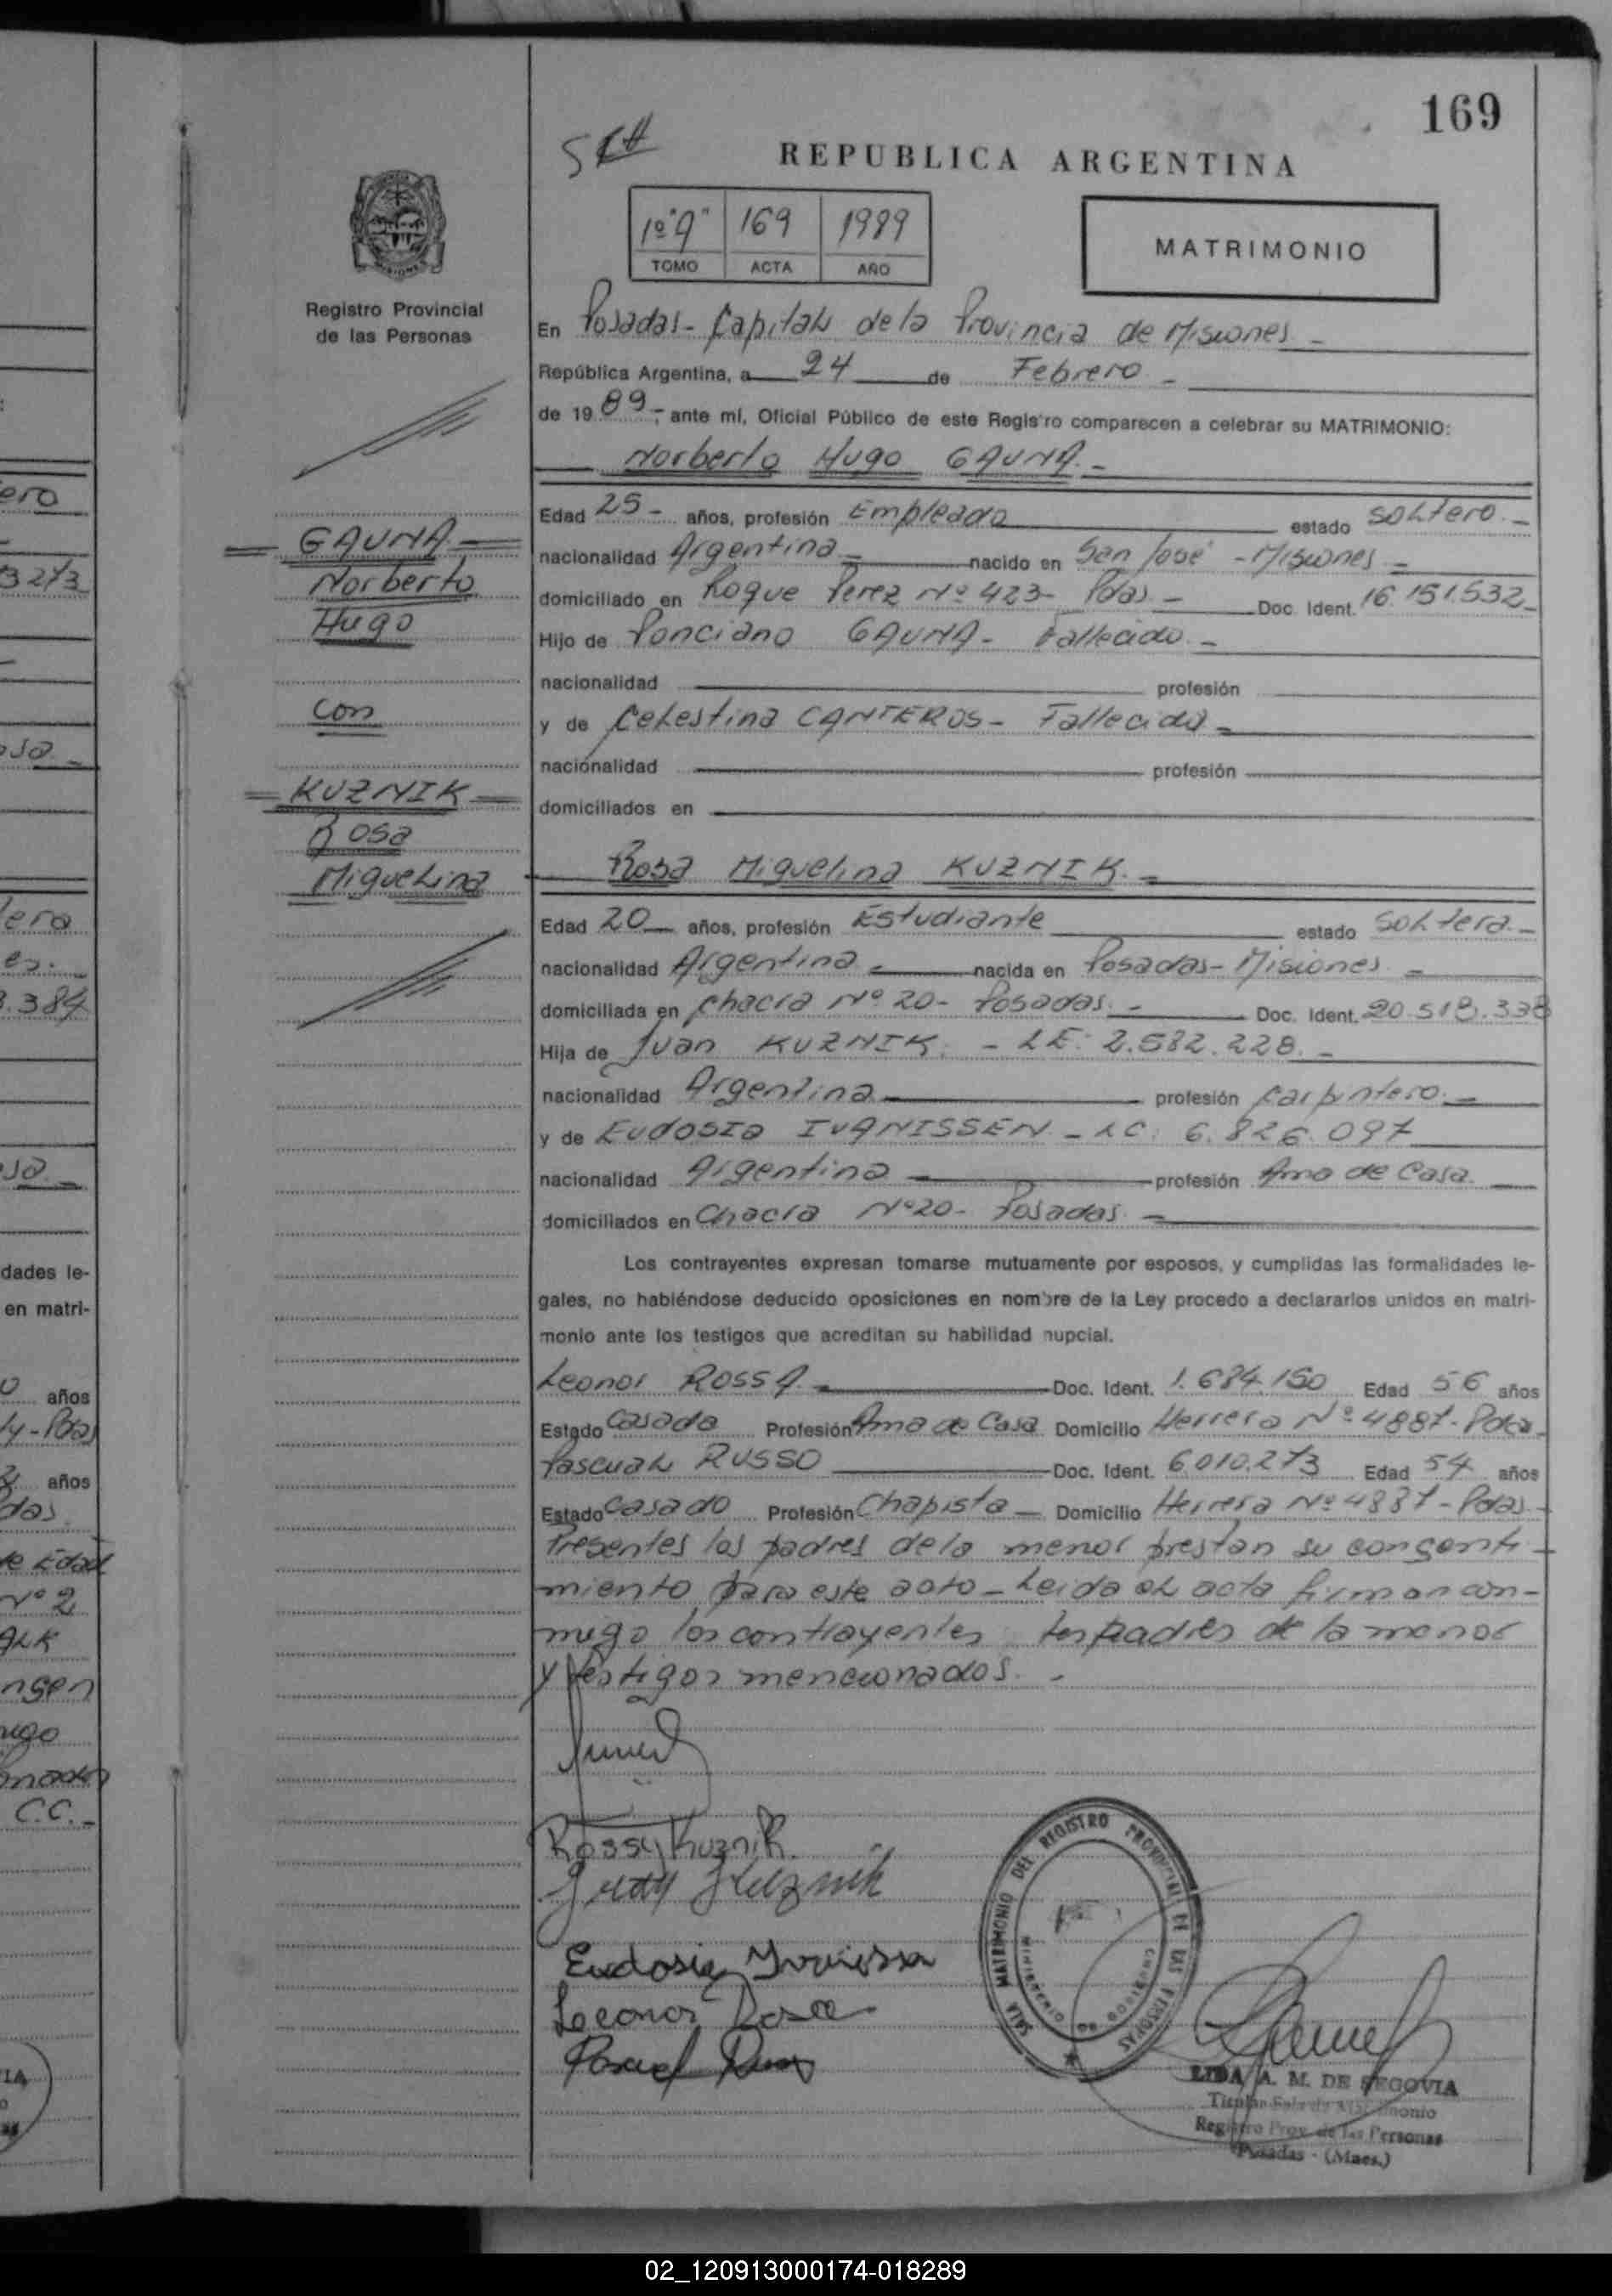 169
REPUBLICA ARGENTINA
1º "A" 169 1989
TOMO ACTA AÑO
MATRIMONIO
Registro Provincial
de las Personas
En Posadas - Capital de la Provincia de Misiones. -
República Argentina, a 24 de Febrero -
de 1989 -, ante mí, Oficial Público de este Registro comparecen a celebrar su MATRIMONIO:
Norberto Hugo GAUNA. -
Edad 25 - años, profesión Empleado estado soltero. -
GAUNA
Norberto
Hugo
nacionalidad Argentina - nacido en San José - Misiones -
domiciliado en Roque Perez Nº 423 - Pdas - Doc. Ident. 16.151.532 -
Hijo de Ponciano GAUNA - Fallecido. -
nacionalidad profesión
con
y de Celestina CANTEROS - Fallecida -
nacionalidad profesión
KUZNIK
Rosa
Miguelina
domiciliados en
Rosa Miguelina KUZNIK. -
Edad 20 años, profesión Estudiante estado soltera. -
nacionalidad Argentina - nacida en Posadas - Misiones -
domiciliada en Chacra Nº 20 - Posadas. - Doc. Ident. 20.518.338
Hija de Juan KUZNIK. - LE: 2.582.228. -
nacionalidad Argentina profesión Carpintero. -
y de Eudosia IVANISSEN - LC: 6.826.097
nacionalidad Argentina profesión Ama de Casa
domiciliados en Chacra Nº 20 - Posadas -
Los contrayentes expresan tomarse mutuamente por esposos, y cumplidas las formalidades le-
gales, no habiéndose deducido oposiciones en nombre de la Ley procedo a declararlos unidos en matri-
monio ante los testigos que acreditan su habilidad nupcial.
Leonor ROSSA. - Doc. Ident. 1.684.150 Edad 56 años
Estado Casada Profesión Ama de Casa Domicilio Herrera Nº 4887 - Pdas -
Pascual RUSSO Doc. Ident. 6.010.273 Edad 54 años
Estado Casado Profesión Chapista - Domicilio Herrera Nº 4887 - Pdas -
Presentes los padres de la menor prestan su consenti-
miento para este acto - Leida el acta firman con-
migo los contrayentes los padres de la menor
y testigos mencionados. -
Rossy Kuznik.
Kuznik
Eudosia
Leonor Rosa
SALA MATRIMONIO DEL REGISTRO PROVINCIAL DE LAS PERSONAS
MINISTERIO DE GOBIERNO
LIDA A. M. DE SEGOVIA
Titular Sala de Matrimonio
Registro Prov. de las Personas
Posadas - (Mnes.)
ero
3273
era
384
dades le-
en matri-
años
años
Nº 2
C.C. -
02_120913000174-018289